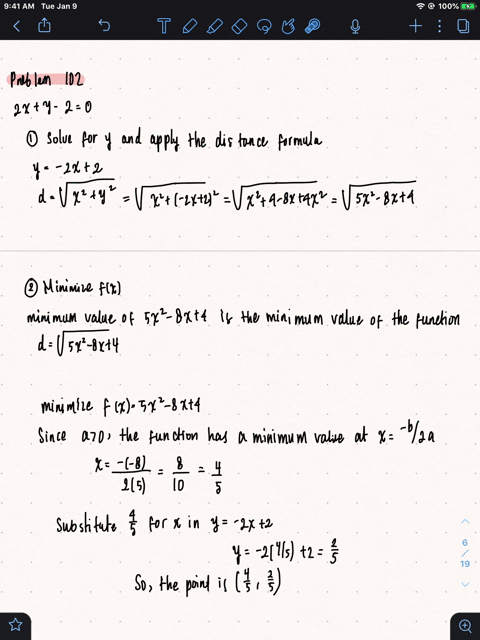 9:41 AM Tue Jan 9 100%
Problem 102
2x+y-2=0
① Solve for y and apply the distance formula
y = -2x+2
d = √(x²+y²) = √(x²+(-2x+2)²) = √(x²+4-8x+4x²) = √(5x²-8x+4)
② Minimize f(x)
minimum value of 5x²-8x+4 is the minimum value of the function
d = √(5x²-8x+4)
minimize f(x) = 5x²-8x+4
Since a>0, the function has a minimum value at x = -b/2a
x = -(-8)/2(5) = 8/10 = 4/5
Substitute 4/5 for x in y = -2x+2
y = -2(4/5)+2 = 2/5
So, the point is (4/5, 2/5)
6
/
19